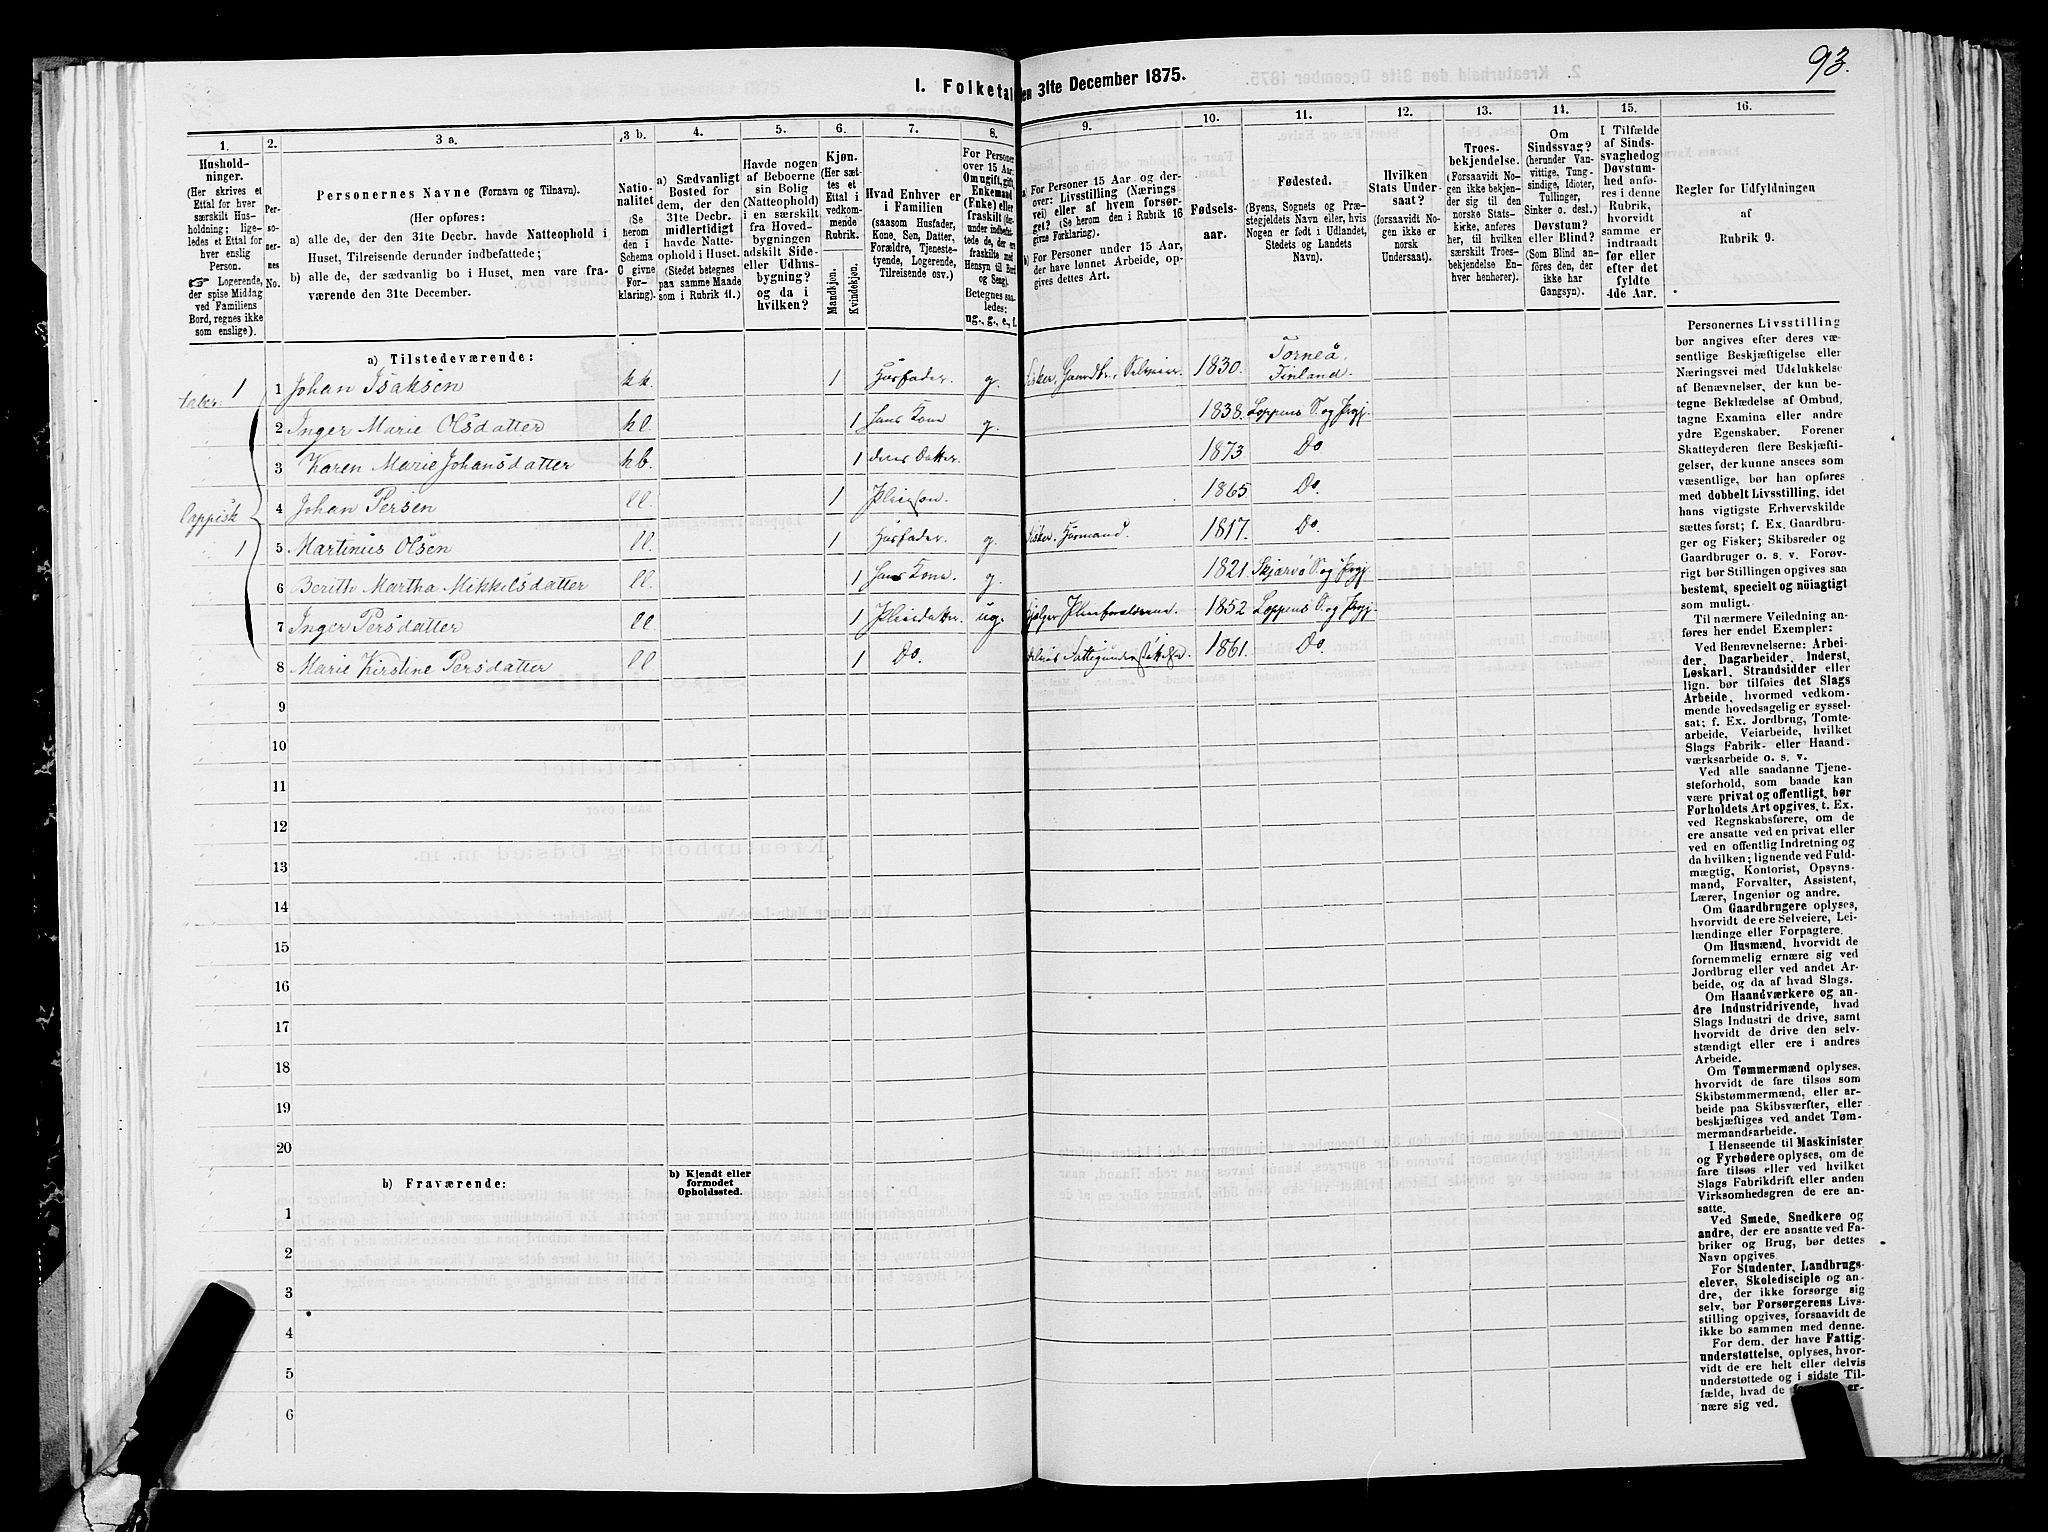 93.
I. Folketal
en 31te December 1875.
1.
Hushold-
ninger.
(Her skrives et
Ettal for hver
særskilt Hus-
holdning; lige-
ledes et Ettal for
hver enslig
Person.
☞ Logerende,
der spise Middag
ved Familiens
Bord, regnes ikke
som enslige).
2.
Per-
so-
ner-
nes
No.
3 a.
Personernes Navne (Fornavn og Tilnavn).
(Her opføres:
a) alle de, der den 31te Decbr. havde Natteophold i
Huset, Tilreisende derunder indbefattede;
b) alle de, der sædvanlig bo i Huset, men vare fra-
værende den 31te December.
3 b.
Natio-
nalitet
(Se
herom
den i
Schema
C givne
For-
klaring).
4.
a) Sædvanligt
Bosted for
dem, der den
31te Decbr.
midlertidigt
havde Natte-
ophold i Huset.
(Stedet betegnes
paa samme Maade
som i Rubrik 11.)
5.
Havde nogen
af Beboerne
sin Bolig
(Natteophold)
i en særskilt
fra Hoved-
bygningen
adskilt Side-
eller Udhus-
bygning?
og da i
hvilken?
6.
Kjøn.
(Her sæt-
tes et
Ettal i
vedkom-
mende
Rubrik.
Mandkjøn.
Kvindekjøn.
7.
Hvad Enhver er
i Familien
(saasom Husfader,
Kone, Søn, Datter,
Forældre, Tjeneste-
tyende, Logerende,
Tilreisende osv.)
8.
For Personer
over 15 Aar:
Om ugift, gift,
Enkemand
(Enke) eller
fraskilt (der-
under indbefat-
tede de, der ere
fraskilte med
Hensyn til Bord
og Seng).
Betegnes saa-
ledes:
ug., g., e., f.
9.
a) For Personer 15 Aar og der-
over: Livsstilling (Nærings
vei) eller af hvem forsør-
get? (Se herom den i Rubrik 16
givne Forklaring).
b) For Personer under 15 Aar,
der have lønnet Arbeide, op-
gives dettes Art.
10.
Fødsels-
aar.
11.
Fødested.
(Byens, Sognets og Præ-
stegjeldets Navn eller, hvis
Nogen er født i Udlandet,
Stedets og Landets
Navn).
12.
Hvilken
Stats Under-
saat?
(forsaavidt No-
gen ikke er
norsk
Undersaat).
13.
Troes-
bekjendelse.
(Forsaavidt No-
gen ikke bekjen-
der sig til den
norske Stats-
kirke, anføres
her, til hvilken
særskilt Troes-
bekjendelse En-
hver henhører).
14.
Om
Sindssvag?
(herunder Van-
vittige, Tung-
sindige, Idioter,
Tullinger,
Sinker o. desl.)
Døvstum?
eller Blind?
(Som Blind an-
føres den, der
ikke har
Gangsyn).
15.
I Tilfælde
af Sinds-
svaghedog
Døvstum-
hed anfø-
res i denne
Rubrik,
hvorvidt
samme er
indtraadt
før eller
efter det
fyldte
4de Aar.
16.
Regler for Udfyldningen
af
Rubrik 9.
a) Tilstedeværende:
1 1 Johan Isaksen kk. 1 Husfader. g. Fisker, Gaardbr., Selveier. 1830. Torneå. Finland.
taler:
2 Inger Marie Olsdatter kl. 1 hans Kone g. 1838. Loppens S. og Prgj.
3 Karen Marie Johansdatter kb. 1 deres Datter. 1873 Do
4 Johan Persen ll. 1 Pleiesøn. 1865. Do.
lappisk
1 5 Martinus Olsen ll. 1 Husfader. g. Fisker. Husmand. 1817. Do.
6 Berith Martha Mikkilsdatter ll. 1 hans Kone. g. 1821. Skjærvø S. og Prgj.
7 Inger Persdatter ll 1 Pleiedatter. ug. hjælper Pleieforældrene. 1852 Loppens S. og Prgj.
8 Marie Kirstine Persdatter ll 1 Do. delvis Fattigunderstøttelse. 1861. Do.
9
10
11
12
13
14
15
16
17
18
19
20
b) Fraværende:
b) Kjendt eller
formodet
Opholdssted.
1
2
3
4
5
6
Personernes Livsstilling
bør angives efter deres væ-
sentlige Beskjæftigelse eller
Næringsvei med Udelukkelse
af Benævnelser, der kun be-
tegne Beklædelse af Ombud,
tagne Examina eller andre
ydre Egenskaber. Forener
Skatteyderen flere Beskjæfti-
gelser, der kunne ansees som
væsentlige, bør han opføres
med dobbelt Livsstilling, idet
hans vigtigste Erhvervskilde
sættes først; f. Ex. Gaardbru-
ger og Fisker; Skibsreder og
Gaardbruger o. s. v. Forøv-
rigt bør Stillingen opgives saa
bestemt, specielt og nöiagtigt
som muligt.
Til nærmere Veiledning an-
føres her endel Exempler:
Ved Benævnelserne: Arbei-
der, Dagarbeider, Inderst,
Løskarl, Strandsidder eller
lign. bør tilføies det Slags
Arbeide, hvormed vedkom-
mende hovedsagelig er syssel-
sat; f. Ex. Jordbrug, Tomte-
arbeide, Veiarbeide, hvilket
Slags Fabrik- eller Haand-
værksarbeide o. s. v.
Ved alle saadanne Tjene-
steforhold, som baade kan
være privat og offentligt, bør
Forholdets Art opgives, t. Ex.
ved Regnskabsførere, om de
ere ansatte ved en privat eller
ved en offentlig Indretning og
da hvilken; lignende ved Fuld-
mægtig, Kontorist, Opsyns-
mand, Forvalter, Assistent,
Lærer, Ingeniør og andre.
Om Gaardbrugere oplyses,
hvorvidt de ere Selveiere, Lei-
lændinge eller Forpagtere.
Om Husmænd, hvorvidt de
fornemmelig ernære sig ved
Jordbrug eller ved andet Ar-
beide, og da af hvad Slags.
Om Haandværkere og an-
dre Industridrivende, hvad
Slags Industri de drive, samt
hvorvidt de drive den selv-
stændigt eller ere i andres
Arbeide.
Om Tømmermænd oplyses,
hvorvidt de fare tilsøs som
Skibstømmermænd, eller ar-
beide paa Skibsværfter, eller
beskjæftiges ved andet Tøm-
mermandsarbeide.
I Henseende til Maskinister
og Fyrbødere oplyses, om de
fare tilsøs eller ved hvilket
Slags Fabrikdrift eller anden
Virksomhedsgren de ere an-
satte.
Ved Smede, Snedkere og
andre, der ere ansatte ved Fa-
briker og Brug, bør dettes
Navn opgives.
For Studenter, Landbrugs-
elever, Skoledisciple og an-
dre, der ikke forsørge sig
selv, bør Forsørgerens Livs-
stilling opgives, forsaavidt de
ikke bo sammen med denne.
For dem, der have Fattig-
understøttelse, oplyses, hvor-
vidt de ere helt eller delvis
understøttede og i sidste Til-
fælde, hvad de
nære sig ved.